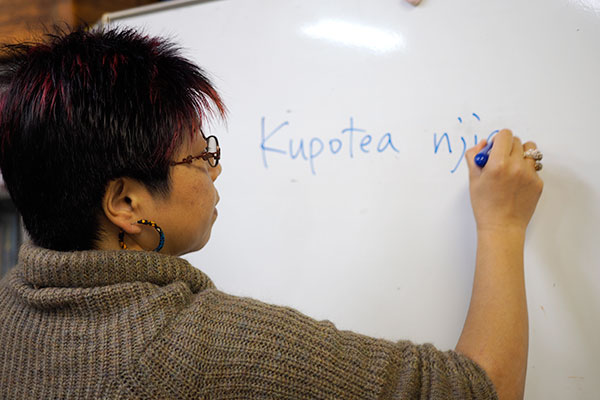 Kupotea njia